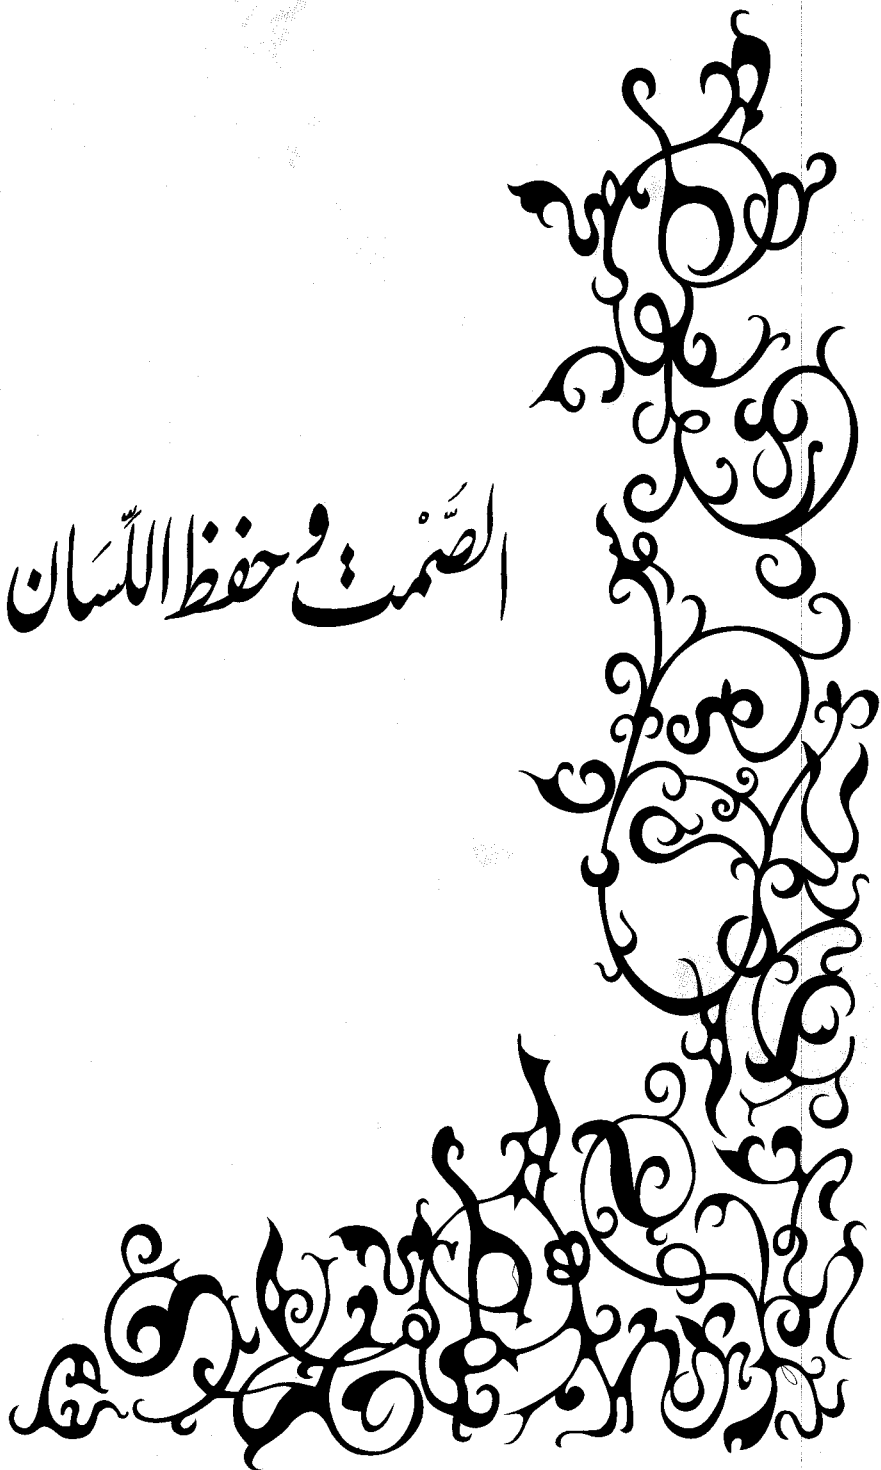 الصَّمْت و حفظ اللِّسَان